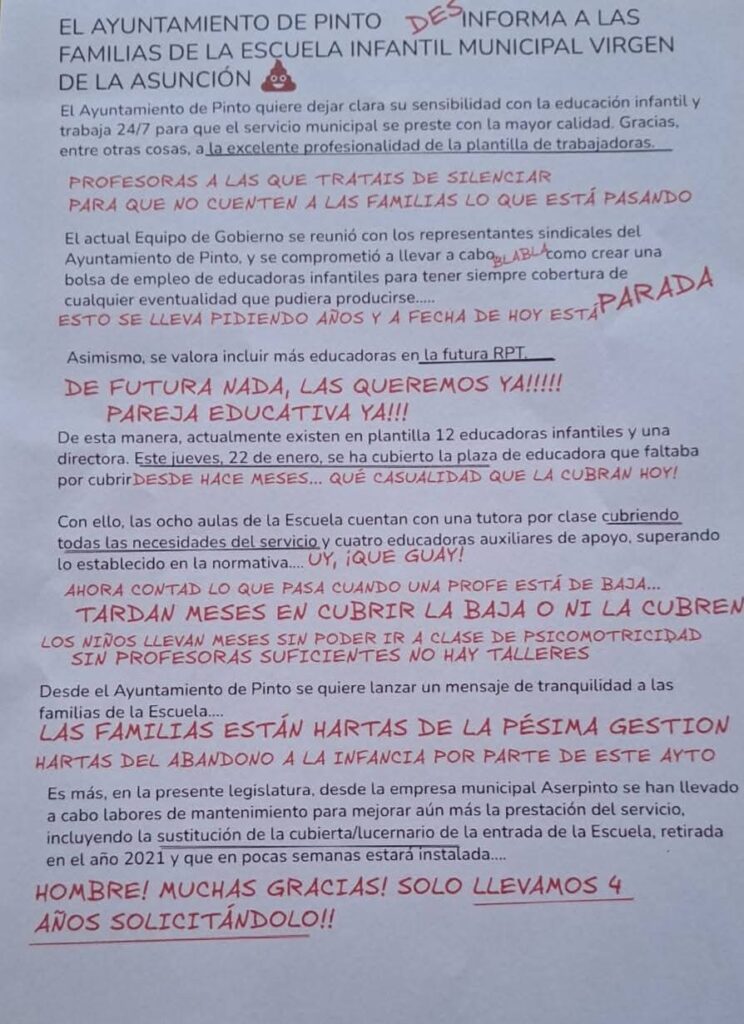 EL AYUNTAMIENTO DE PINTO DESINFORMA A LAS
FAMILIAS DE LA ESCUELA INFANTIL MUNICIPAL VIRGEN
DE LA ASUNCIÓN 💩
El Ayuntamiento de Pinto quiere dejar clara su sensibilidad con la educación infantil y
trabaja 24/7 para que el servicio municipal se preste con la mayor calidad. Gracias,
entre otras cosas, a la excelente profesionalidad de la plantilla de trabajadoras.
PROFESORAS A LAS QUE TRATAIS DE SILENCIAR
PARA QUE NO CUENTEN A LAS FAMILIAS LO QUE ESTÁ PASANDO
El actual Equipo de Gobierno se reunió con los representantes sindicales del
Ayuntamiento de Pinto, y se comprometió a llevar a cabo BLABLA como crear una
bolsa de empleo de educadoras infantiles para tener siempre cobertura de
cualquier eventualidad que pudiera producirse.....
ESTO SE LLEVA PIDIENDO AÑOS Y A FECHA DE HOY ESTÁ PARADA
Asimismo, se valora incluir más educadoras en la futura RPT.
DE FUTURA NADA, LAS QUEREMOS YA!!!!!
PAREJA EDUCATIVA YA!!!
De esta manera, actualmente existen en plantilla 12 educadoras infantiles y una
directora. Este jueves, 22 de enero, se ha cubierto la plaza de educadora que faltaba
por cubrir DESDE HACE MESES... QUÉ CASUALIDAD QUE LA CUBRAN HOY!
Con ello, las ocho aulas de la Escuela cuentan con una tutora por clase cubriendo
todas las necesidades del servicio y cuatro educadoras auxiliares de apoyo, superando
lo establecido en la normativa.... UY, ¡QUE GUAY!
AHORA CONTAD LO QUE PASA CUANDO UNA PROFE ESTÁ DE BAJA...
TARDAN MESES EN CUBRIR LA BAJA O NI LA CUBREN
LOS NIÑOS LLEVAN MESES SIN PODER IR A CLASE DE PSICOMOTRICIDAD
SIN PROFESORAS SUFICIENTES NO HAY TALLERES
Desde el Ayuntamiento de Pinto se quiere lanzar un mensaje de tranquilidad a las
familias de la Escuela....
LAS FAMILIAS ESTÁN HARTAS DE LA PÉSIMA GESTION
HARTAS DEL ABANDONO A LA INFANCIA POR PARTE DE ESTE AYTO
Es más, en la presente legislatura, desde la empresa municipal Aserpinto se han llevado
a cabo labores de mantenimiento para mejorar aún más la prestación del servicio,
incluyendo la sustitución de la cubierta/lucernario de la entrada de la Escuela, retirada
en el año 2021 y que en pocas semanas estará instalada....
HOMBRE! MUCHAS GRACIAS! SOLO LLEVAMOS 4
AÑOS SOLICITÁNDOLO!!